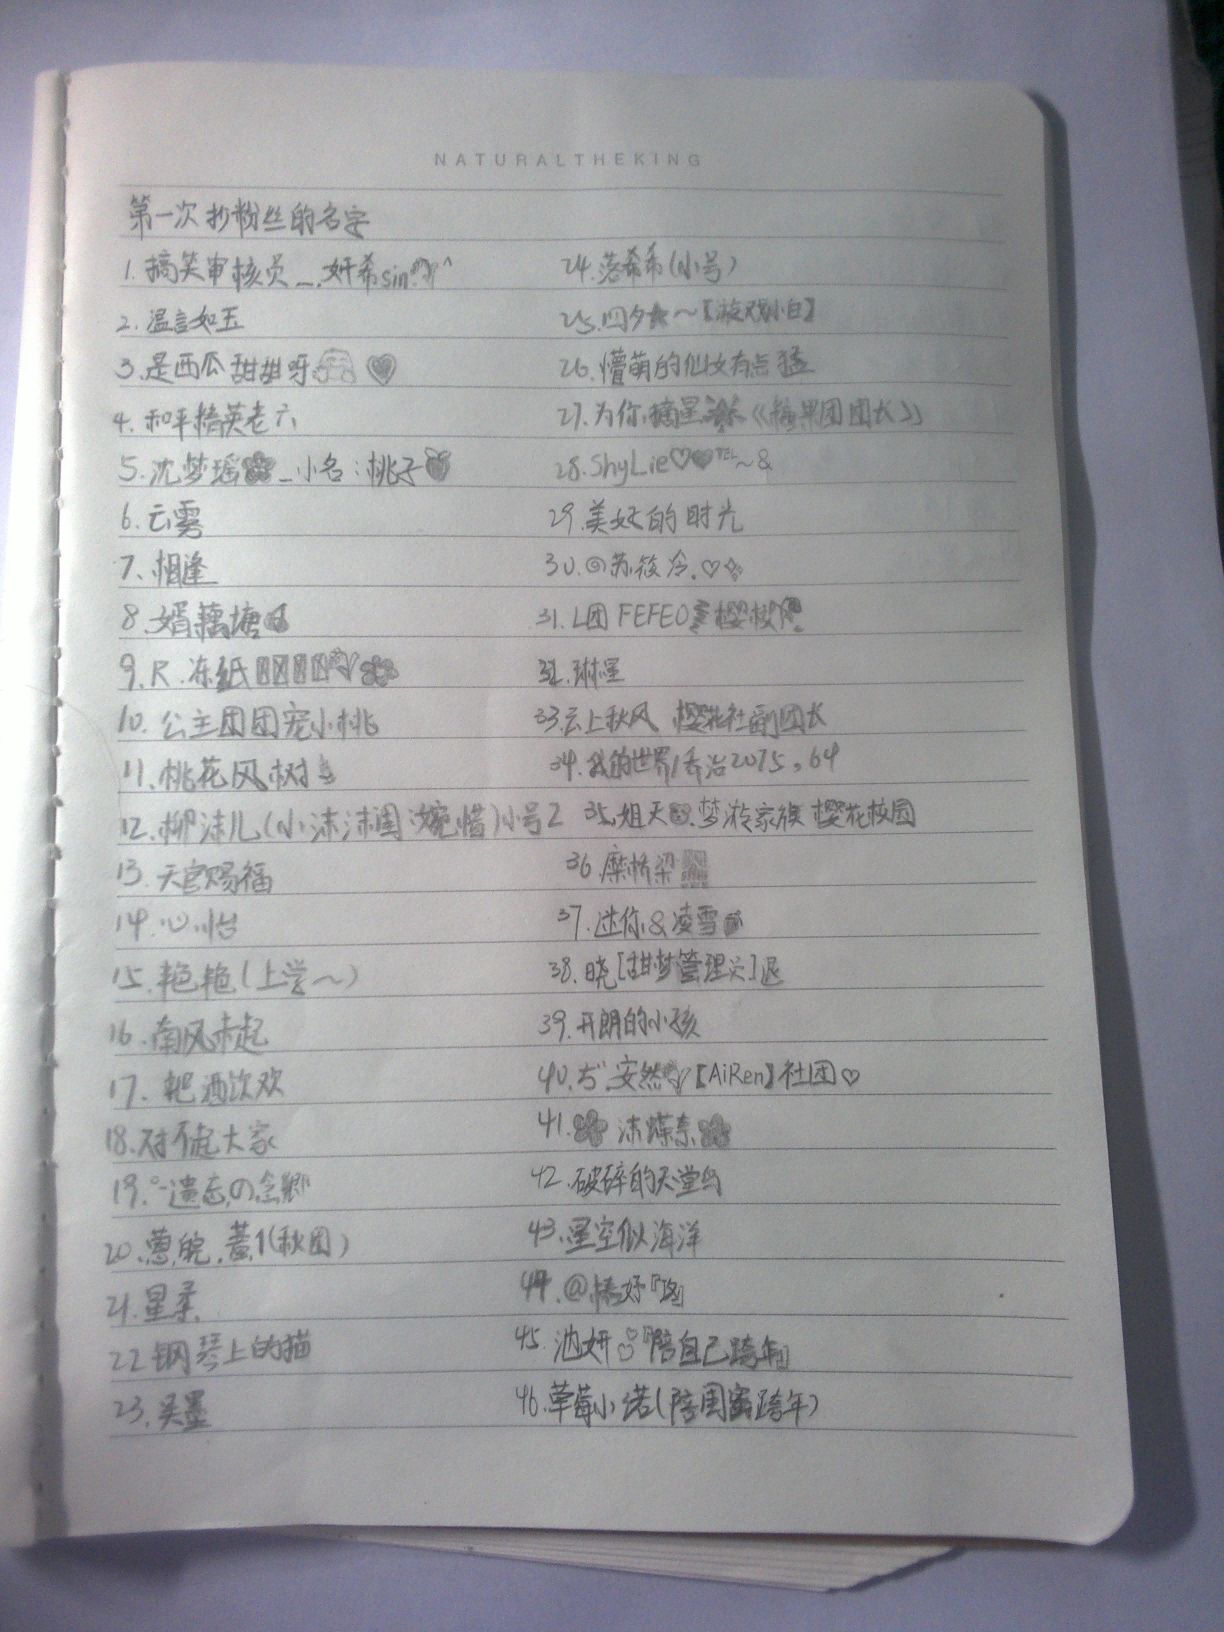 NATURALTHEKING
第一次抄粉丝的名字
1. 搞笑审核员_.妍希sin
2. 温言如玉
3. 是西瓜甜甜呀
4. 和平精英老六
5. 沈梦瑶_小名:桃子
6. 云雾
7. 相逢
8. 婿藕塘
9. R.冻纸
10. 公主团团宠小桃
11. 桃花风树
12. 柳沫儿(小沫沫 婉惜)小号2
13. 天官赐福
14. 心怡
15. 艳艳(上学~)
16. 南风未起
17. 把酒饮欢
18. 对不起大家
19. 遗忘の念
20. 葱.皖. (秋团)
21. 星柔
22 钢琴上的猫
23. 吴墨
24. 落希希(小号)
25. 四夕~【游戏小白】
26. 懵萌的仙女有点猛
27. 为你摘星《糖果团团长》
28. ShyLie♡♥TEL~&
29. 美好的时光
30. ◎苏筱冷.♡
31. L团 FEFEO 樱校
32. 琳星
33. 云上秋风 樱花社副团长
34. 我的世界/乔治2075,64
35. 姐天.梦泠家族 樱花校园
36. 糜桥梁
37. 迷你&凌雪
38. 晓[甜梦管理员]退
39. 开朗的小孩
40. 安然【AiRen】社团♡
41. 沫蝶奈
42. 破碎的天堂鸟
43. 星空似海洋
44. @婿好『
45. 池妍『陪自己跨年』
46. 草莓小诺(陪闺蜜跨年)